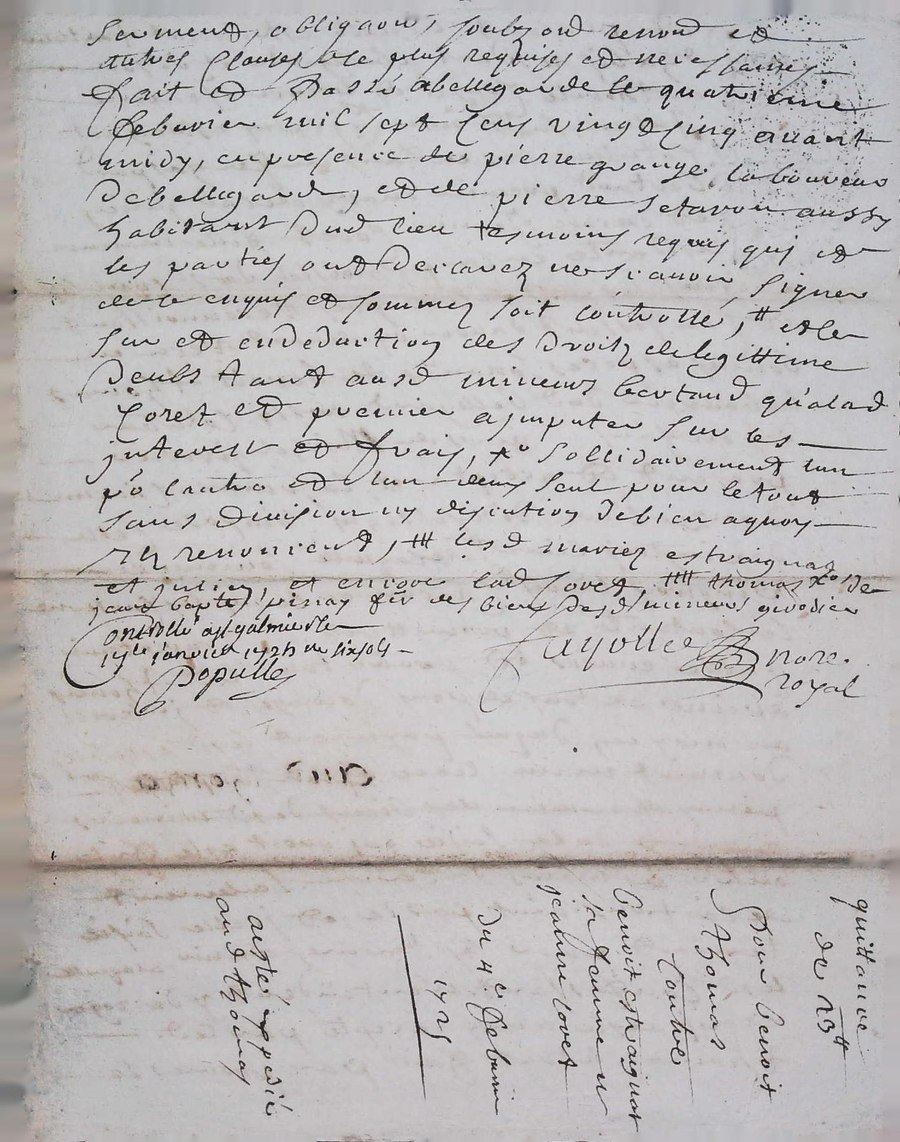 serment, obligaon, soubzon renond et
autres Clauses les plus requises et necessaires
fait et Passé abellegarde le quatrieme
febvrier mil sept Cens vingt Cinq avant
midy, en presence de pierre grange laboureur
debellegarde, et de pierre setavon aussy
habitant dud lieu tesmoins requis qui et
les parties ont declarez ne scavoir signer
de ce enquis et sommez soit controllé, # et le
sur et en deduction des droitz de legittime
deubs tant ausd mineurs bertand qu'alad
Coret et premier a jmputer sur les
jnterest et frais, solidairement lun
po lautre et lun deux seul pour le tout
sans division ny discution de bien aquoy
Ilz renoncent, ## lesd mariez estraignat
et julien, et encore lad Coret, thomas de
jean bapte pinay des biens desd mineurs
Controllé a st galmier le
janvier 1725 six s
Populle
fayolle nore.
royal
quittance
de 23tt
Pour benoit
thomas
Contre
benoit estraignat
sa femme et
jeanne Coret
du 4e febvrier
1725
acte expedié
aud thomas